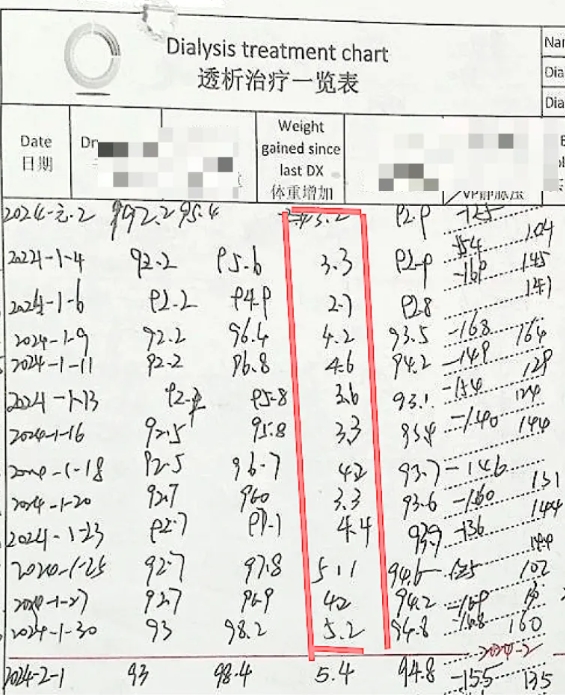 Dialysis treatment chart
透析治疗一览表
Nar
Dia
Dia
Date
日期
Dr
Weight
gained since
last DX
体重增加
VP静脉压
92.2 95.4 3.2
2024-1-4 92.2 95.6 3.3 145
2024-1-6 92.2 94.9 2.7 92.8
2024-1-9 92.2 96.4 4.2 93.5 -168 164
2024-1-11 92.2 96.8 4.6 94.2 -149 129
2024-1-13 95.8 3.6 93.1 -154 124
2024-1-16 92.5 95.8 3.3 -140 144
2024-1-18 92.5 96.7 4.2 93.7 -146
2024-1-20 92.7 960 3.3 93.6 -160 131
2024-1-23 92.7 97.1 4.4 -136 144
2024-1-25 92.7 97.8 5.1 94.6 102
2024-1-27 92.7 96.9 42 94.2
2024-1-30 93 98.2 5.2 94.8 160
2024-2-1 93 98.4 5.4 94.8 -155 135